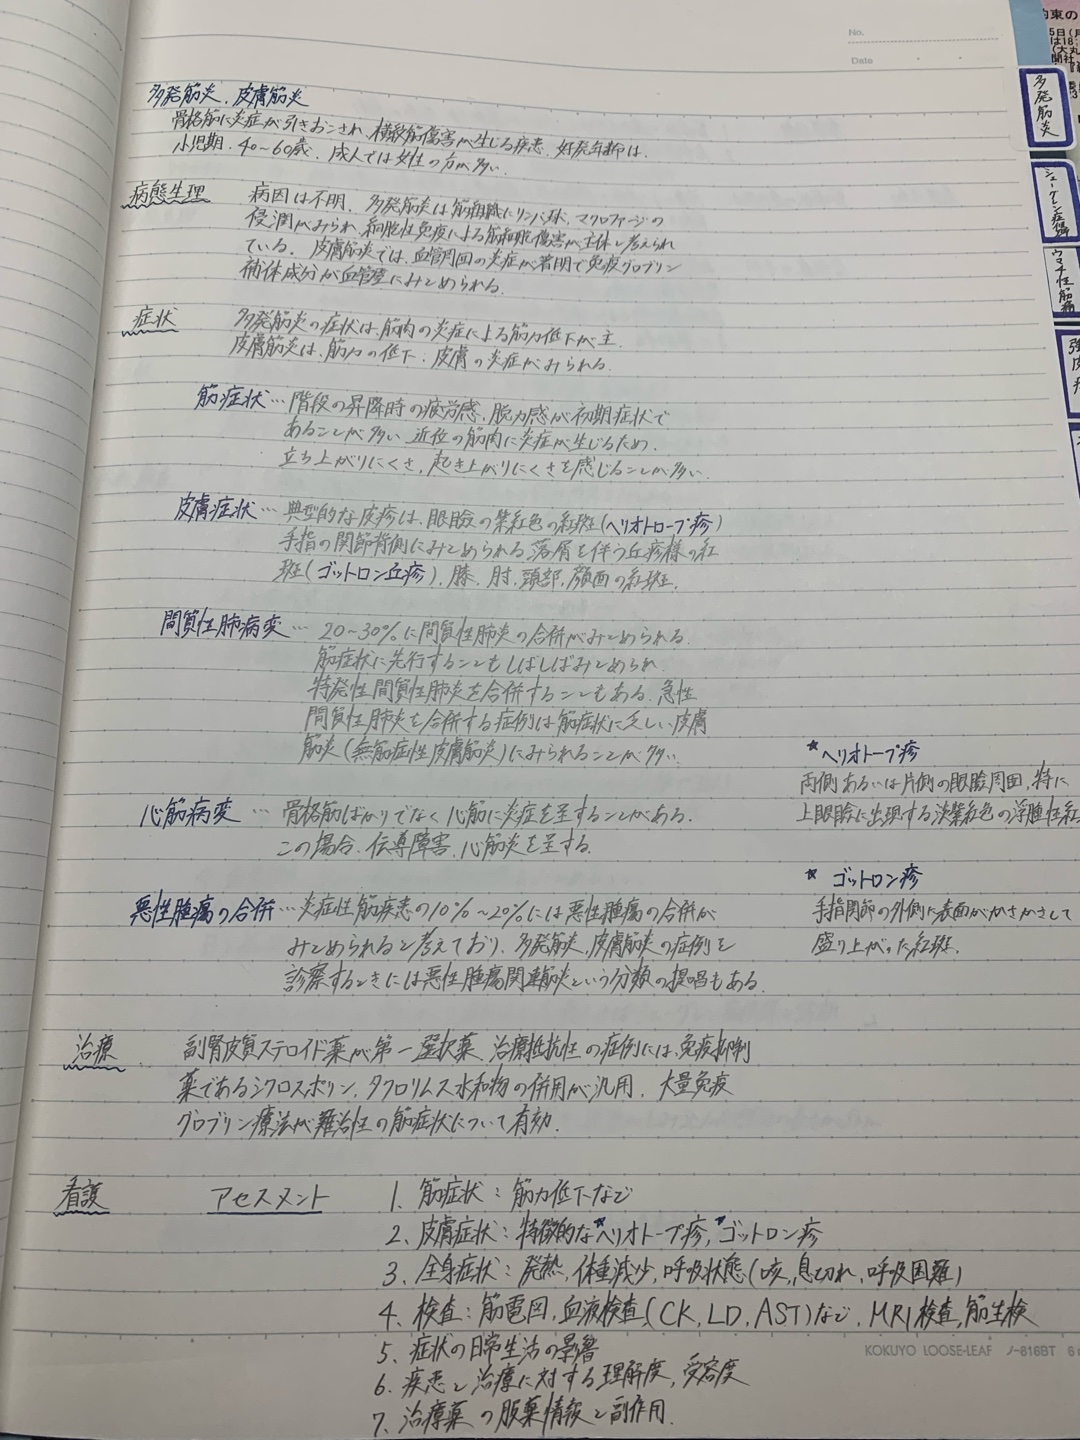 No.
Date
多発筋炎、皮膚筋炎
骨格筋に炎症が引きおこされ、横紋筋傷害が生じる疾患、好発年齢は、
小児期、40〜60歳、成人では女性の方が多い。
病態生理
病因は不明、多発筋炎は筋組織にリンパ球、マクロファージの
侵潤がみられ、細胞性免疫による筋細胞傷害が主体と考えられ
ている。皮膚筋炎では、血管周囲の炎症が著明で免疫グロブリン
補体成分が血管壁にみとめられる。
症状
多発筋炎の症状は、筋肉の炎症による筋力低下が主、
皮膚筋炎は、筋力の低下、皮膚の炎症がみられる。
筋症状…階段の昇降時の疲労感、脱力感が初期症状で
あることが多い、近位の筋肉に炎症が生じるため、
立ち上がりにくさ、起き上がりにくさを感じることが多い、
皮膚症状…典型的な皮疹は、眼瞼の紫紅色の紅斑(ヘリオトロープ疹)
手指の関節背側にみとめられる落屑を伴う丘疹様の紅
斑(ゴットロン丘疹)、膝、肘、頭部、顔面の紅斑、
間質性肺病変…20〜30%に間質性肺炎の合併がみとめられる、
筋症状に先行することもしばしばみとめられ
特発性間質性肺炎を合併することもある、急性
間質性肺炎を合併する症例は筋症状に乏しい皮膚
筋炎(無筋症性皮膚筋炎)にみられることが多い、
心筋病変…骨格筋ばかりでなく心筋に炎症を呈することがある、
この場合、伝導障害、心筋炎を呈する、
悪性腫瘍の合併…炎症性筋疾患の10%〜20%には悪性腫瘍の合併が
みとめられると考えており、多発筋炎、皮膚筋炎の症例を
診察するときには悪性腫瘍関連筋炎という分類の提唱もある、
*ヘリオトープ疹
両側あるいは片側の眼瞼周囲、特に
上眼瞼に出現する淡紫紅色の浮腫性紅
*ゴットロン疹
手指関節の外側に表面がかさかさして
盛り上がった紅斑、
治療
副腎皮質ステロイド薬が第一選択薬、治療抵抗性の症例には、免疫抑制
薬であるシクロスポリン、タクロリムス水和物の併用が汎用、大量免疫
グロブリン療法が難治性の筋症状について有効、
看護
アセスメント
1、筋症状：筋力低下など
2、皮膚症状：特徴的な*ヘリオトープ疹、*ゴットロン疹
3、全身症状：発熱、体重減少、呼吸状態(咳、息切れ、呼吸困難)
4、検査：筋電図、血液検査(CK、LD、AST)など、MRI検査、筋生検
5、症状の日常生活の影響
6、疾患と治療に対する理解度、受容度
7、治療薬の服薬情報と副作用、
KOKUYO LOOSE-LEAF ノ-816BT 6
多発筋炎
シェーグレン症候群
リウマチ性筋痛
強皮